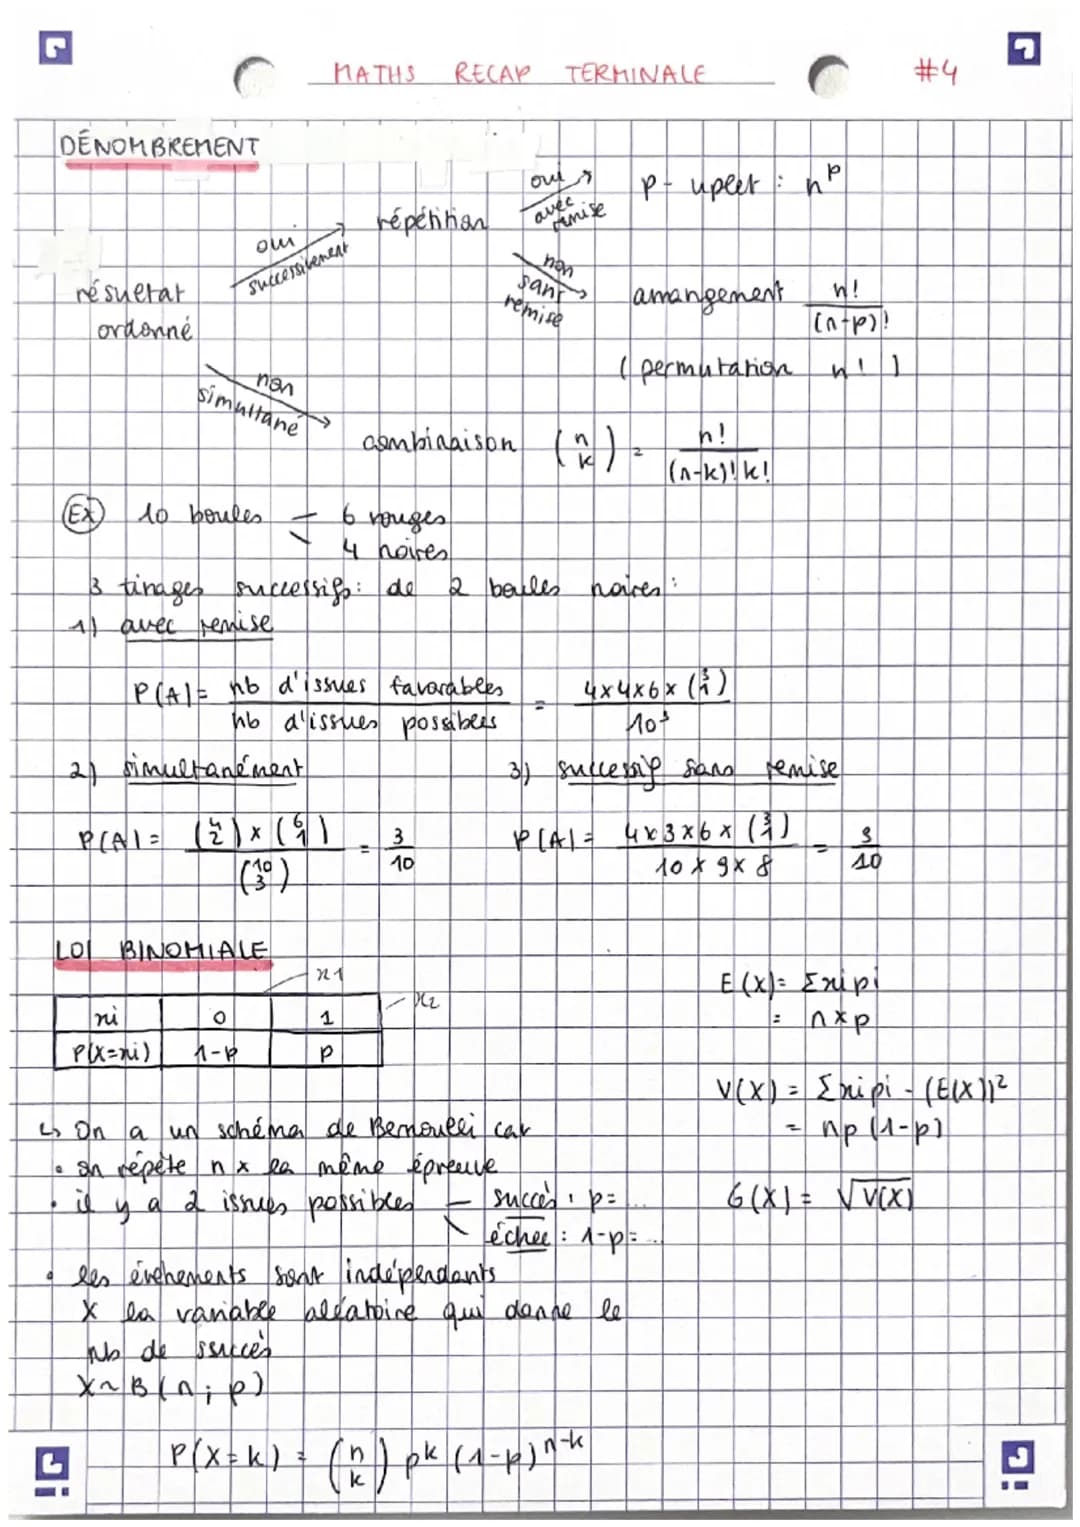 MATHS RECAP TERMINALE #4
DÉNOMBREMENT
résultat ordonné
oui successivement
répétition
oui avec remise
p-uplet : n^p
non sans remise
arrangement n! / (n-p)!
( permutation n! )
non simultané
combinaison (n k) = n! / (n-k)! k!
Ex 10 boules - 6 rouges
\ 4 noires
3 tirages successifs : de 2 boules noires :
1) avec remise
P(A) = nb d'issues favorables / nb d'issues possibles = 4x4x6x (3 1) / 10^3
2) simultanément
P(A) = (4 2) x (6 1) / (10 3) = 3/10
3) successif sans remise
P(A) = 4x3x6x (3 1) / 10 x 9x 8 = 3/10
LOI BINOMIALE
x1
x2
xi 0 1
P(X=xi) 1-p p
E(X) = Σxipi
= nxp
V(X) = Σxipi - (E(X))²
= np(1-p)
σ(X) = √V(X)
↳ On a un schéma de Bernoulli car
• on répète n x la même épreuve
• il y a 2 issues possibles - succès : p= ...
\ échec : 1-p= ...
• les événements sont indépendants
X la variable aléatoire qui donne le
nb de succès
X~B(n ; p)
P(X=k) = (n k) p^k (1-p)^n-k